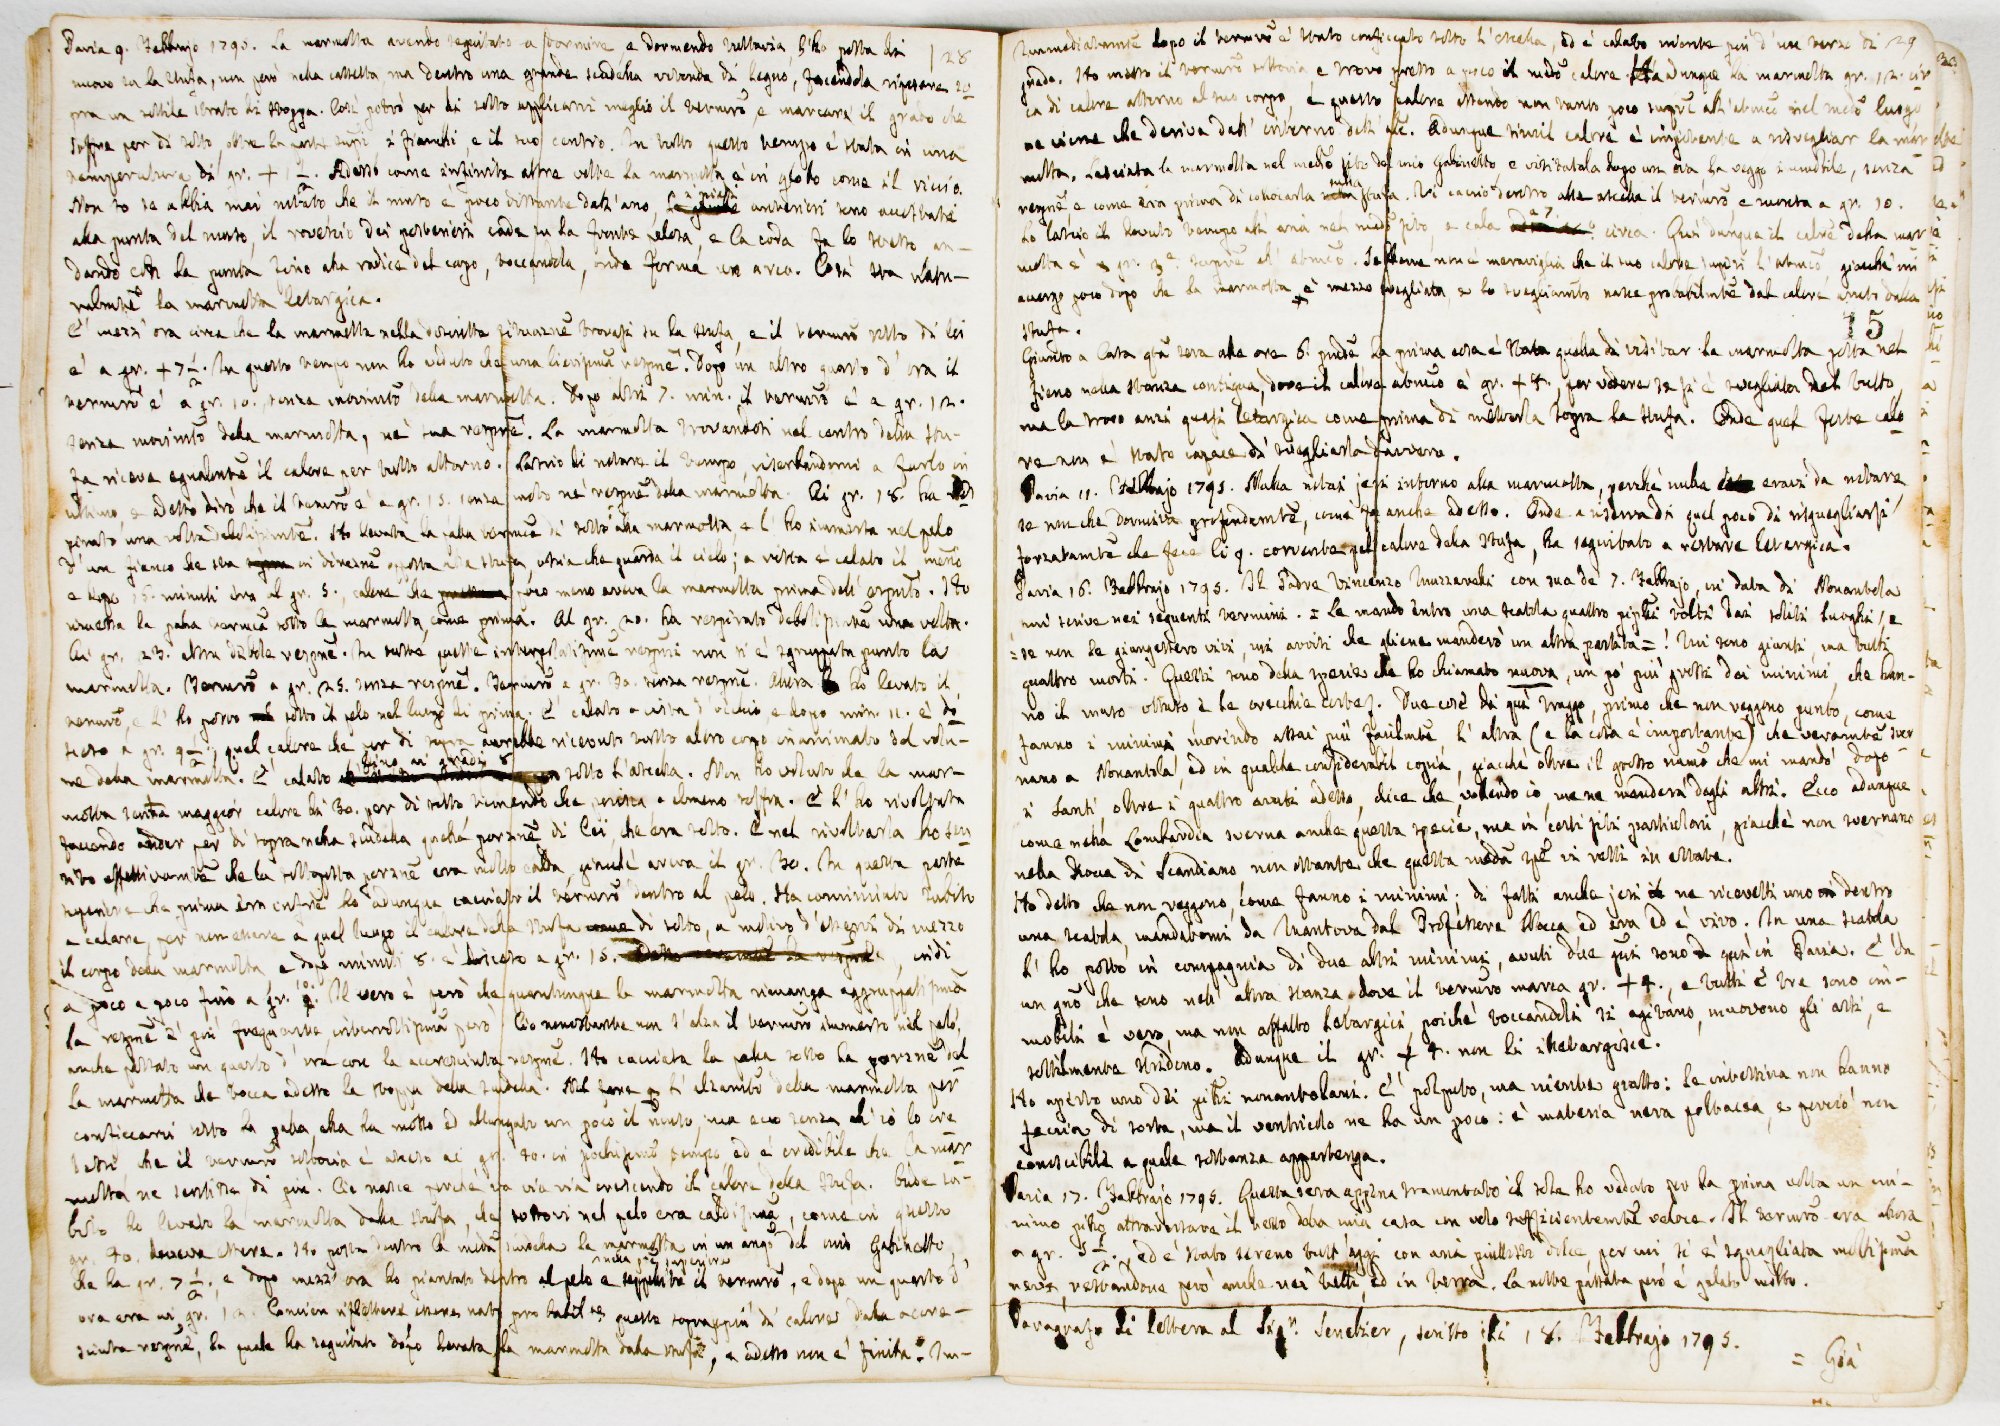 Pavia 9. Febbrajo 1795. La marmotta avendo seguitato a dormire e dormendo tuttavia, l'ho posta di
28
nuovo su la stufa, non però nella cassetta ma dentro una grande scudella rotonda di legno, facendola riposare so
pra un sottile strato di stoppa. Così potrò per di sotto applicarvi meglio il termrõ, e marcare il grado che
soffre per di sotto, oltre la i fianchi e il suo centro. In tutto questo tempo è stata in una
temperatura di gr. + 1 1/2. Adesso come infinite altre volte la marmotta è in globo come il riccio.
Non so se abbia mai notato che il muso è poco distante dall'ano, i piedi anteriori sono accostati
alla punta del muso, il rovescio dei posteriori cade su la fronte pelosa, e la coda fa lo stesso an-
dando con la punta fino alla radice del capo, toccandola, onde forma un arco. Così sta natu-
ralmẽte la marmotta letargica.
È mezz'ora circa che la marmotta nella descritta situaznẽ trovasi su la stufa, e il termrõ sotto di lei
è a gr. + 7 1/2. In questo tempo non ho veduto che una lievissima respnẽ. Dopo un altro quarto d'ora il
termrõ è a gr. 10. senza movimto della marmotta. Dopo altri 7. min. il termrõ è a gr. 12.
senza movimto della marmotta, nè sua respnẽ. La marmotta trovandosi nel centro della stu-
fa riceve egualmtẽ il calore per tutto attorno. Lascio di notare il tempo, riserbandomi a farlo in
ultimo, e adesso dirò che il termrõ è a gr. 15. senza moto nè respnẽ della marmotta. Ai gr. 18. ha res
pirato una volta debolissimtẽ. Ho levata la palla termca di sotto alla marmotta, e l'ho immersa nel pelo
d'un fianco che sta in direznẽ opposta alla stufa, ossia che guarda il cielo; a vista è calato il
e dopo 15. minuti era al gr. 5., calore che poco meno aveva la marmotta prima dell' Ho
rimessa la palla termca sotto la marmotta come prima. Al gr. 20. ha respirato debolissimtẽ una volta.
Ai gr. 23. altra debole respnẽ. In tutte queste respni non si è sgruppata punto la
marmotta. Termrõ a gr. 25. senza respnẽ. Termrõ a gr. 30. senza respnẽ. Allora ho levato il
termrõ, e l'ho posto sotto il pelo nel luogo di prima. È calato a vista d'occhio, e dopo min. 11. è di
sceso a gr. 9 1/2; quel calore che per di sopra avrebbe ricevuto tutto altro corpo inanimato del volu-
me della marmotta. È calato fino ai gradi 8 sotto l'ascella. Non ho voluto che la mar-
motta senta maggior calore di 30. per di sotto temendo che perisca o almeno soffra. E l'ho rivoltata
facendo andar per di sopra nella scudella quella porznẽ di lei, che era sotto. E nel rivoltarla ho sen
tito effettivamtẽ che la sottoposta porznẽ era molto calda, giacchè aveva il gr. 30. In questa parte
superiore che prima era infre ho adunque cacciato il termrõ dentro al pelo. Ha cominciato subito
a calare, per non essere a quel luogo il calore della stufa di sotto, a motivo d'esservi di mezzo
il corpo della marmotta e dopo minuti 8. è disceso a gr. 15., indi
a poco a poco fino a gr. 10. Il vero è però che quantunque la marmotta rimanga aggruppatissima
la respnẽ è più frequente, interrottissima però. Ciò nonostante non s'alza il termrõ immerso nel pelo,
anche passato un quarto d'ora con la accresciuta respnẽ. Ho cacciata la palla sotto la porznẽ del
la marmotta che tocca adesso la stoppa della scudella. della marmotta per
conficcarvi sotto la palla, ella ha mosso ed allungato un poco il muso, ma ecco senza ch'io lo cre
dessi che il termrõ sottovia è asceso ai gr. 40. in pochissimo tempo ed è credibile che la mar
motta ne sentisse di più. Ciò nasce perchè va via via crescendo il calore della stufa. Onde su-
bito ho levato la marmotta dalla stufa, che sottovi nel pelo era caldissima, come in questo
gr. 40. doveva essere. Ho posta dentro la meda scudella la marmotta in un angõ del mio Gabinetto,
che ha gr. 7 1/2, e dopo mezz'ora ho piantato dentro al pelo nella pte superiore il termrõ, e dopo un quarto d'
ora era ai gr. 12. Conviene riflettere essere nato probabilte questo soprappiù di calore dalla accre-
sciuta respnẽ, la quale ha seguitato dopo levata la marmotta dalla stufa, e adesso non è finita. Im-
29
immediatamtẽ dopo il termrõ è stato conficcato sotto l'ascella, ed è calato niente più d'un terzo di
grado. Ho messo il termrõ sottovia e trovo presso a poco il medõ calore. Ha adunque la marmotta gr. 12. cir
ca di calore attorno al suo corpo, e questo calore essendo non tanto poco supre all'atmcõ nel medõ luogo
ne viene che deriva dall'interno dell'ale. Adunque simil calore è impotente a risvegliar la mar
motta. Lasciata la marmotta nel medõ sito del mio Gabinetto e visitatala dopo una ora la veggo immobile, senza
respnẽ e come era prima di collocarla sulla stufa. Vi caccio dentro alla ascella il termrõ, e monta a gr. 10.
Lo lascio il dovuto tempo all'aria nel medõ sito, e cala a 7. circa. Qui dunque il calore della mar
motta è gr. 3. supre all'atmcõ. Sebbene non è meraviglia che il suo calore superi l'atmcõ, giacchè mi
accorgo poco dopo che la marmotta è mezzo svegliata, e lo svegliamto nasce probabilmtẽ dal calore avuto dalla
stufa.
15
Giunto a Casa qta sera alle ore 6. pmde la prima cosa è stata quella di visitar la marmotta posta nel
fieno nella stanza contigua, dove il calore atmcõ è gr. + 4., per vedere se si è svegliata del tutto,
ma la trovo anzi quasi letargica come prima di metterla sopra la stufa. Onde quel forte calo
re non è stato capace di svegliarla davvero.
Pavia 11. Febbrajo 1795. Nulla notai jeri intorno alla marmotta, perchè nulla eravi da notare
se non che dormiva profondamtẽ, come fa anche adesso. Onde a riserva di quel poco di risvegliarsi
forzatamtẽ che fece li 9. corrente pel calore della stufa, ha seguitato a restare letargica.
Pavia 16. Febbrajo 1795. Il Padre Vincenzo Muzzarelli con sua de 7. Febbrajo, in data di Nonantola
mi scrive nei seguenti termini. = Le mando entro una scatola quattro pipilli volti dai soliti luoghi, e
= se non le giungessero vivi, mi avvisi che gliene manderò un altra partita = ! Mi sono giunti, ma tutti
quattro morti. Questi sono della specie che ho chiamato nuova, un pò più grossi dei minimi, che han-
no il muso ottuso e le orecchie corte. Due cose da qua traggo, primo che non reggono punto, come
fanno i minimi morendo assai più facilmtẽ. L'altra (e la cosa è importante) che veramtẽ sver
nano a Nonantola, ed in qualche considerabil copia, giacchè oltre il grosso numõ che mi mandò dopo
i Santi, oltre i quattro avuti adesso, dice che volendo io, me ne manderà degli altri. Ecco adunque
come nella Lombardia sverna anche questa specie, ma in certi siti particolari, giacchè non svernano
nella Rocca di Scandiano non ostante che questa meda spẽ vi resti in estate.
Ho detto che non reggono, come fanno i minimi; di fatti anche jeri ne ricevetti uno dentro
una scatola, mandatomi da Mantova dal Professore Rocca ed era ed è vivo. In una scatola
l'ho posto in compagnia di due altri minimi, avuti due gni sono qui in Pavia. È in
un gnõ che sono nell'altra stanza dove il termrõ marca gr. + 4., e tutti e tre sono im-
mobili è vero, ma non affatto letargici, poichè toccandoli si agitano, muovono gli arti, e
sottilmente stridono. Adunque il gr. + 4. non li illetargisce.
Ho aperto uno dei pipilli nonantolani. È polputo, ma niente grasso: Le intestina non hanno
feccia di sorta, ma il ventricolo ne ha un poco: è materia nera poltacea, e perciò non
conoscibile a quale sostanza appartenga.
Pavia 17. Febbrajo 1795. Questa sera appena tramontato il sole ho veduto per la prima volta un mi-
nimo attraversare il vano della mia casa con volo sufficientemtẽ veloce. Il termrõ era allora
a gr. 5 1/2, ed è stato sereno tutt'oggi con aria piuttosto dolce per cui si è squagliata moltissima
neve, restandone però anche nei tetti, ed in terra. La notte passata però è gelato molto.
Paragrafo di lettera al Sigr. Senebier, scritto il di 18. Febbrajo 1795.
= Già